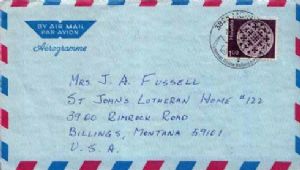 BY AIR MAIL
PAR AVION
Aerogramme
MRS J. A. FUSSELL
ST JOHNS LUTHERAN HOME #122
3900 RIMROCK ROAD
BILLINGS, MONTANA 59101
U.S.A.